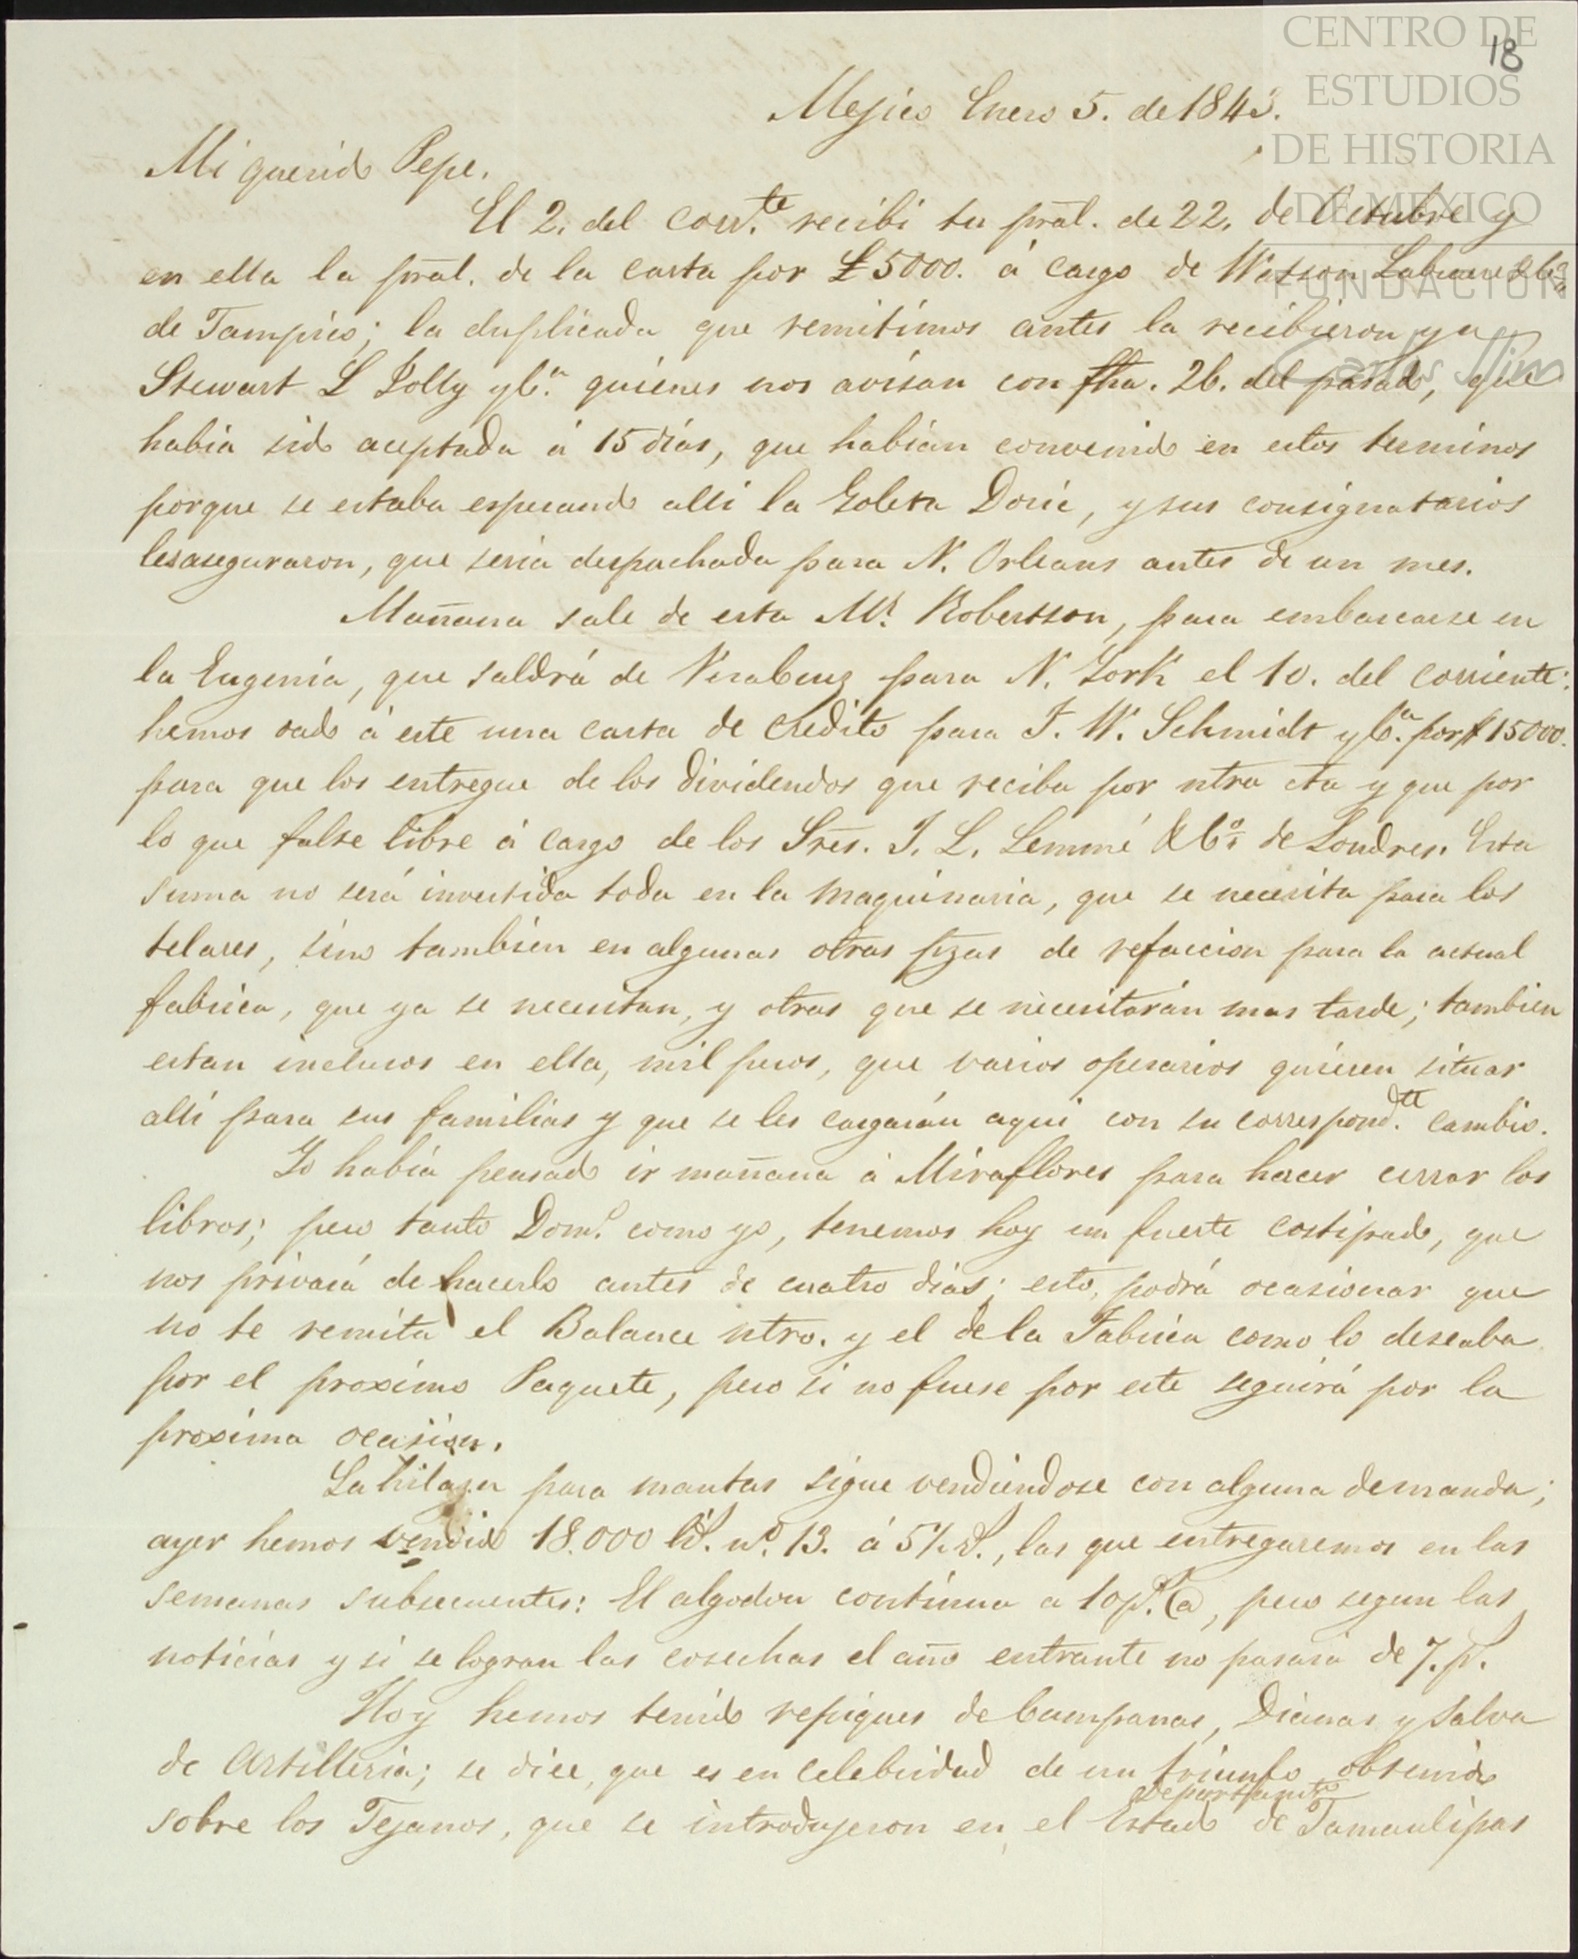 CENTRO DE
ESTUDIOS
DE HISTORIA
DE MEXICO
FUNDACION
Carlos Slim
18
Mejico Enero 5. de 1843.
Mi querido Pepe.
El 2. del corr.te recibi tu pral. de 22. de Octubre y
en ella la pral. de la carta por £5000. á cargo de Watson &Cª
de Tampico; la duplicada que remitimos antes la recibieron ya
Stewart L Jolly y Cª. quienes nos avisan con fha. 26. del pasado, que
habia sido aceptada á 15 dias, que habian convenido en estos terminos
porque se estaba esperando alli la Goleta Doric, y sus consignatarios
les aseguraron, que seria despachada para N. Orleans antes de un mes.
Mañana sale de esta Mr. Robertson, para embarcarse en
la Eugenia, que saldrá de VeraCruz para N. York el 10. del corriente:
hemos dado á este una carta de credito para J. W. Schmidt y Cª. por $15000.
para que los entregue de los dividendos que reciba por ntra cta y que por
lo que falte libre á cargo de los Sres. J. L. Lemmé &Cº de Londres. Esta
suma no será invertida toda en la maquinaria, que se necesita para los
telares, sino tambien en algunas otras pzas de refaccion para la actual
fabrica, que ya se necesitan, y otras que se necesitarán mas tarde; tambien
estan inclusos en ella, mil pesos, que varios operarios quieren situar
alli para sus familias y que se les cargarán aqui con su correspond.te cambio.
Yo habia pensado ir mañana á Miraflores para hacer cerrar los
libros; pero tanto Dom.º como yo, tenemos hoy un fuerte costipado, que
nos privará de hacerlo antes de cuatro dias; esto, podrá ocasionar que
no te remita el Balance ntro. y el de la Fabrica como lo deseaba
por el proximo Paquete, pero si no fuese por este seguirá por la
proxima ocasion.
La hilaza para mantas sigue vendiendose con alguna demanda;
ayer hemos vendido 18.000 lb.s nº. 13. á 5½ r.s, las que entregaremos en las
semanas subsecuentes: El algodon continua a 10 p.s @, pero segun las
noticias y si se logran las cosechas el año entrante no pasará de 7. p.s
Hoy hemos tenido repiques de Campanas, Dianas y Salva
de Artilleria; se dice, que es en celebridad de un triunfo obtenido
sobre los Tejanos, que se introdujeron en el Estado Departamto de Tamaulipas